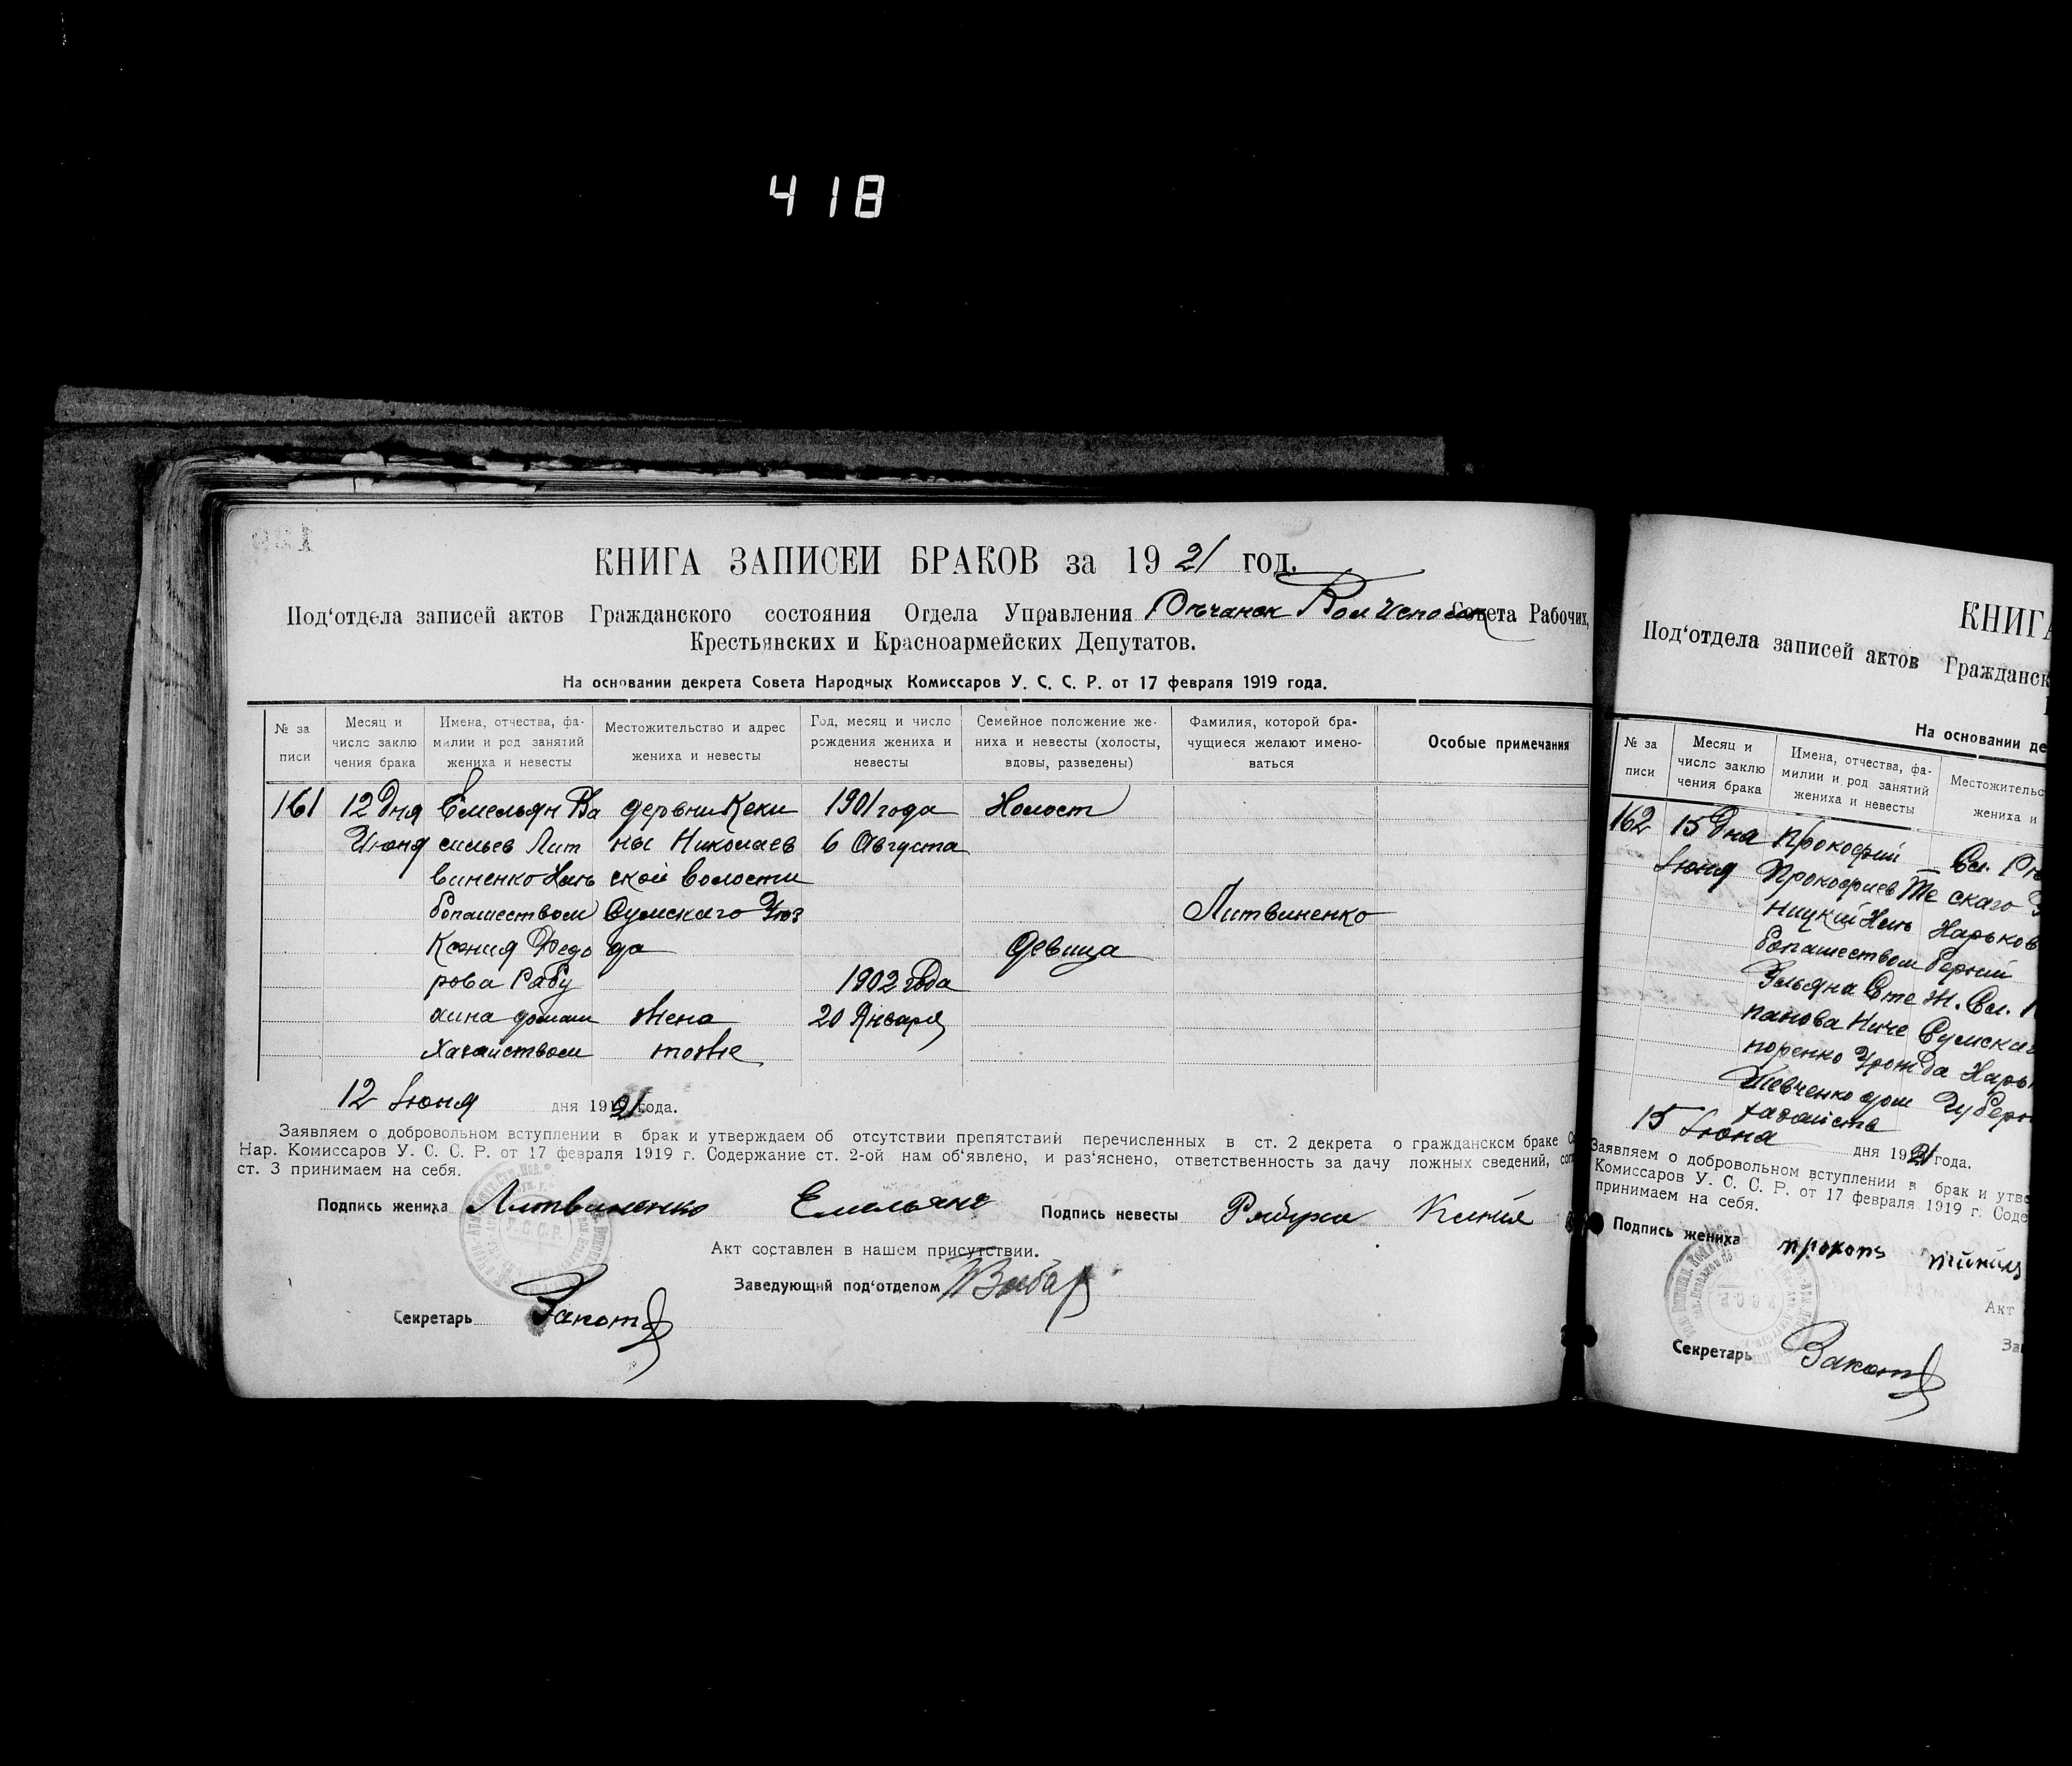 418
КНИГА ЗАПИСЕЙ БРАКОВ за 1921 год.
Под‘отдела записей актов Гражданского состояния Отдела Управления Совета Рабочих,
Крестьянских и Красноармейских Депутатов.
На основании декрета Совета Народных Комиссаров У. С. С. Р. от 17 февраля 1919 года.
№ за писи
Месяц и число заклю чения брака
Имена, отчества, фа- милии и род занятий жениха и невесты
Местожительство и адрес жениха и невесты
Год, месяц и число рождения жениха и невесты
Семейное положение же- ниха и невесты (холосты, вдовы, разведены)
Фамилия, которой бра- чущиеся желают имено- ваться
Особые примечания
161 12 Дня Емельян Ва деревни Кеки 1901 года Холост
Июня сильев Лит ны Николаев 6 Августа
виненко Хле ской Волости
бопашеством Сумскаго Уез Литвиненко
Ксения Федо да девица
рова Рябу 1902 года
хина домаш жена 20 Января
Хазайством тоже
12 Июня дня 1921 года.
Заявляем о добровольном вступлении в брак и утверждаем об отсутствии препятствий перечисленных в ст. 2 декрета о гражданском браке
Нар. Комиссаров У. С. С. Р. от 17 февраля 1919 г. Содержание ст. 2-ой нам об‘явлено, и раз‘яснено, ответственность за дачу ложных сведений,
ст. 3 принимаем на себя.
Подпись жениха Литвиненко Емельяно Подпись невесты
Акт составлен в нашем присутствии.
Заведующий под‘отделом
Секретарь
КНИГА
Под‘отдела записей актов Гражданск
На основании де
№ за писи
Месяц и число заклю чения брака
Имена, отчества, фа- милии и род занятий жениха и невесты
Местожительс жениха и
162 15 Дня Прокофий
Июня Прокофиев Те скаго
ницкий Хле Харьков
бопашеством бернии
Ульяна Сте
панова Ниче Сумскаг
поренко Урож да Харьк
Шевченко дом Губерн
хазайства
15 Июня дня 1921 года.
Заявляем о добровольном вступлении в брак и утве
Комиссаров У. С. С. Р. от 17 февраля 1919 г. Соде
принимаем на себя.
Подпись жениха
Акт
За
Секретарь